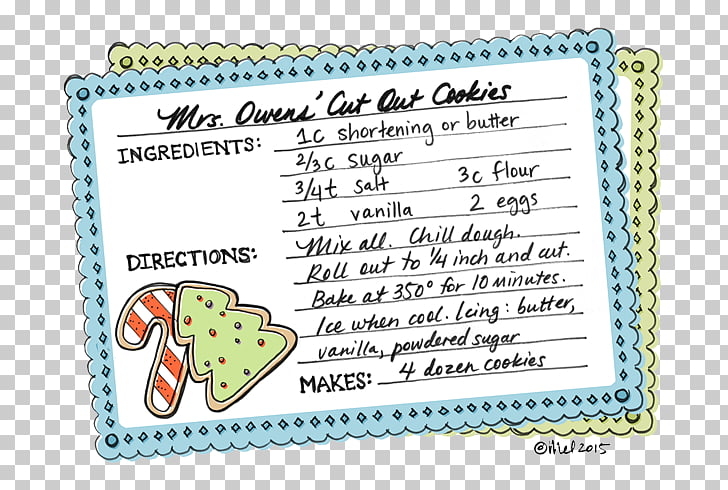 Mrs. Owens' Cut Out Cookies
INGREDIENTS: 1c shortening or butter
2/3c sugar
3/4t salt 3c flour
2t vanilla 2 eggs
DIRECTIONS: Mix all. Chill dough.
Roll out to 1/4 inch and cut.
Bake at 350° for 10 minutes.
Ice when cool. Icing: butter,
vanilla, powdered sugar
MAKES: 4 dozen cookies
© 2015